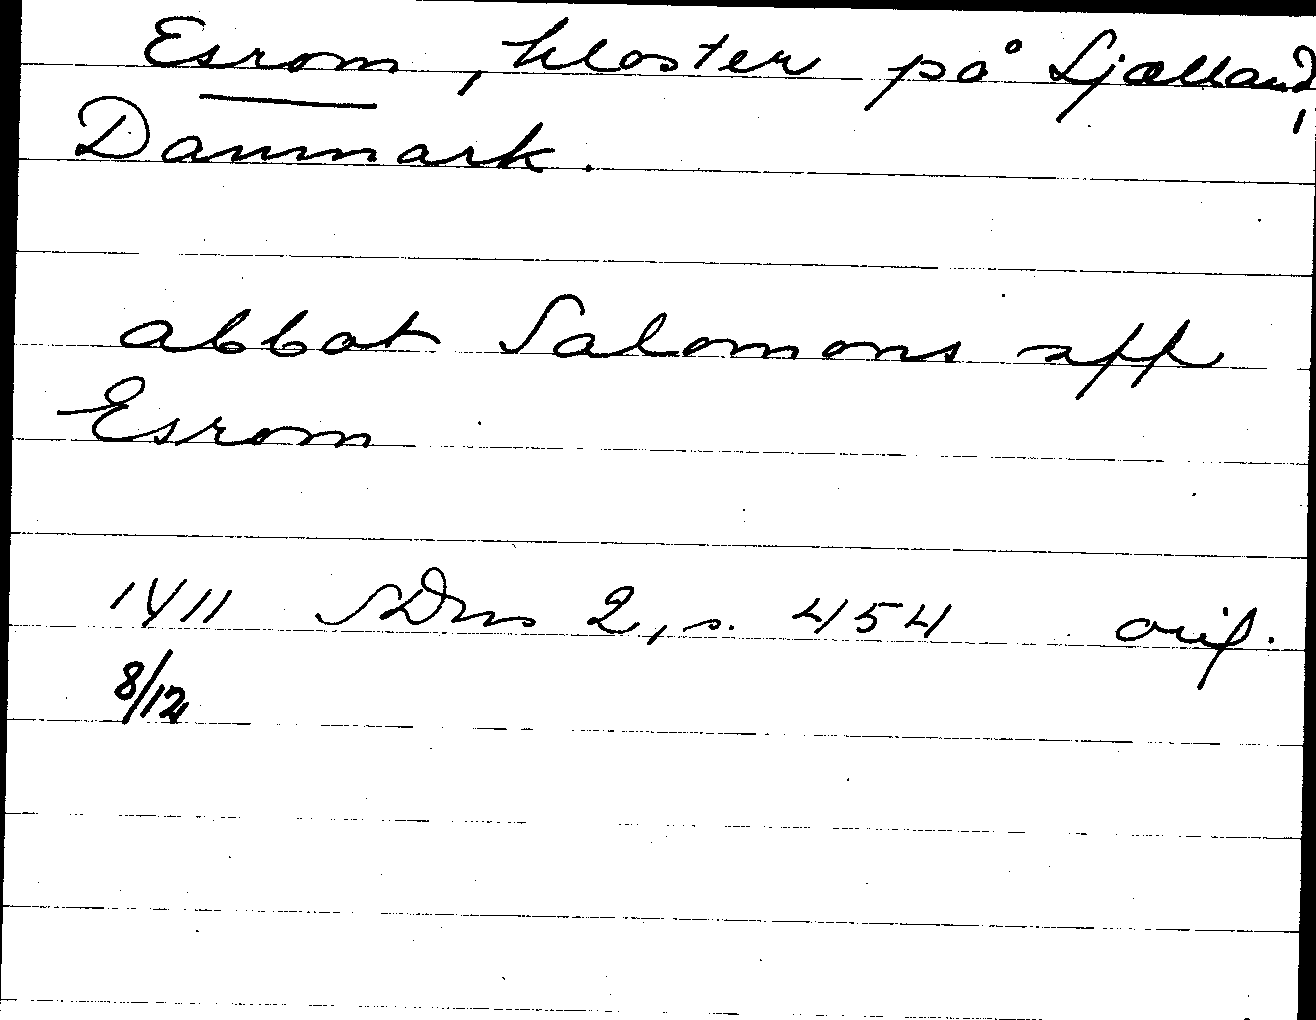 Esrom, kloster på Sjælland,
Danmark.
abbot Salomons aff
Esrom
1411 SDns 2, s. 454 orig.
8/12